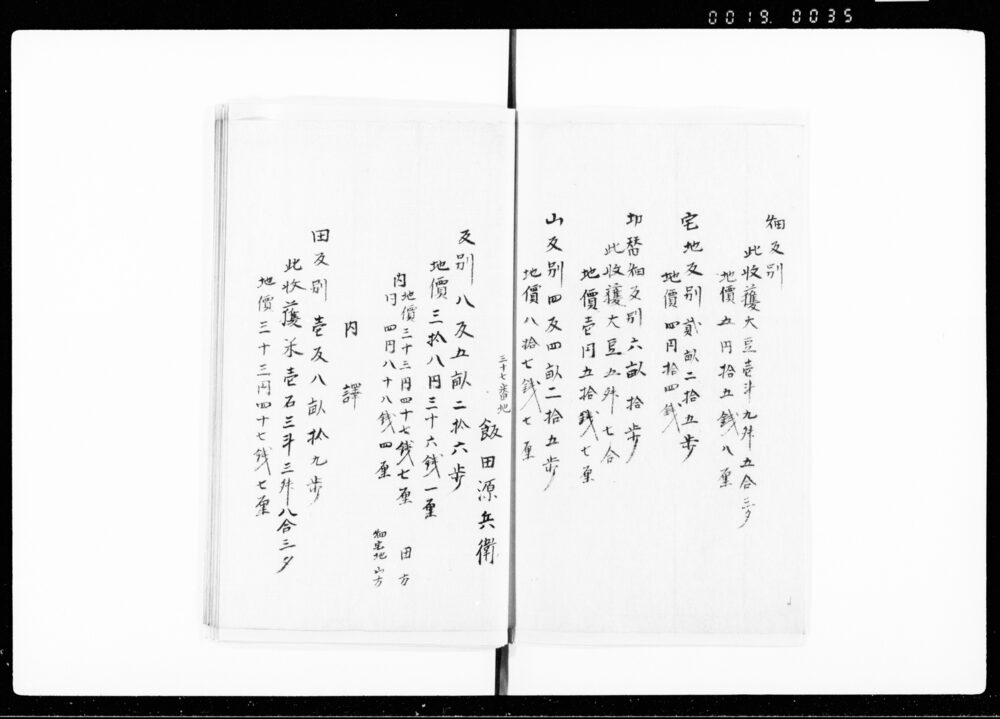 0019 0035
畑反別
此收穫大豆壱斗九舛五合三夕
地價五円拾五銭八厘
宅地反別貳畝二拾五歩
地價四円拾四銭
切替畑反別六畝拾歩
此收穫大豆五舛七合
地價壱円五拾銭七厘
山反別四反四畝二拾五歩
地價八拾七銭七厘
三十七番地
飯田源兵衛
反別八反五畝二拾六歩
地價三拾八円三十六銭一厘
内地價三十三円四十七銭七厘 田方
内円四円八十八銭四厘 畑宅地山方
内譯
田反別壱反八畝拾九歩
此收穫米壱石三斗三舛八合三夕
地價三十三円四十七銭七厘